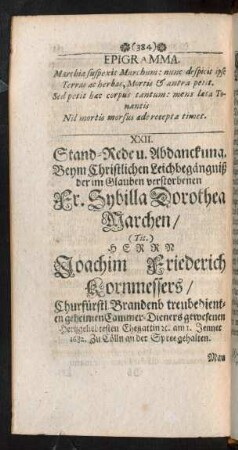 (384)
EPIGRAMMA.
Marchia suspexit Marchum: nunc despicit ipse
Terras ac herbas, Mortis & antra petit.
Sed petit hæc corpus tantum: mens læta Tonantis
Nil mortis morsus adrecepta timet.
XXII.
Stand-Rede u. Abdanckung.
Beym Christlichen Leichbegängniß
der im Glauben verstorbenen
Fr. Sybilla Dorothea
Marchen /
(Tit.)
HERRN
Joachim Friederich
Kornmessers /
Churfürstl. Brandenb treubedient-
en geheimen Cammer-Dieners gewesenen
Hertzgeliebtesten Ehegattin ec. am 1. Jenner
1682. Zu Cölln an der Spree gehalten.